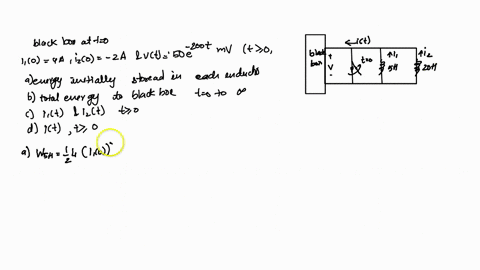 black box at t=0
i₁(0) = 4A, i₂(0) = -2A & v(t) = 50e^-200t mV (t>0,
a) energy initially stored in each inductor
b) total energy to black box t=0 to ∞
c) i₁(t) & i₂(t) t≥0
d) i(t), t≥0
a) W5H = 1/2 L (i₁(0))²
i(t)
black box
+
V
-
t=0
i₁
5H
i₂
20H